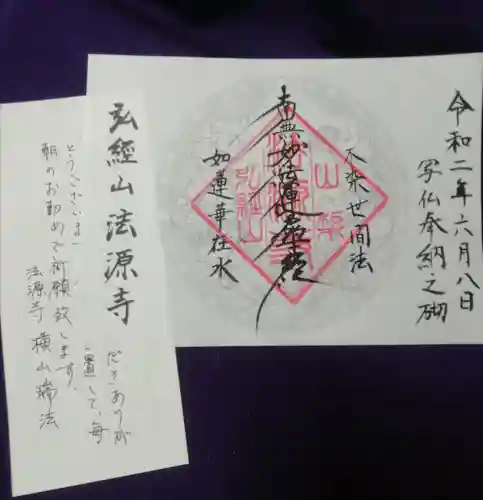 令和二年六月八日
写仏奉納之砌
不染世間法
南無妙法蓮華経
如蓮華在水
弘經山
弘經山法源寺
置して、毎
朝のお勤めで祈願致します。
法源寺 横山瑞法